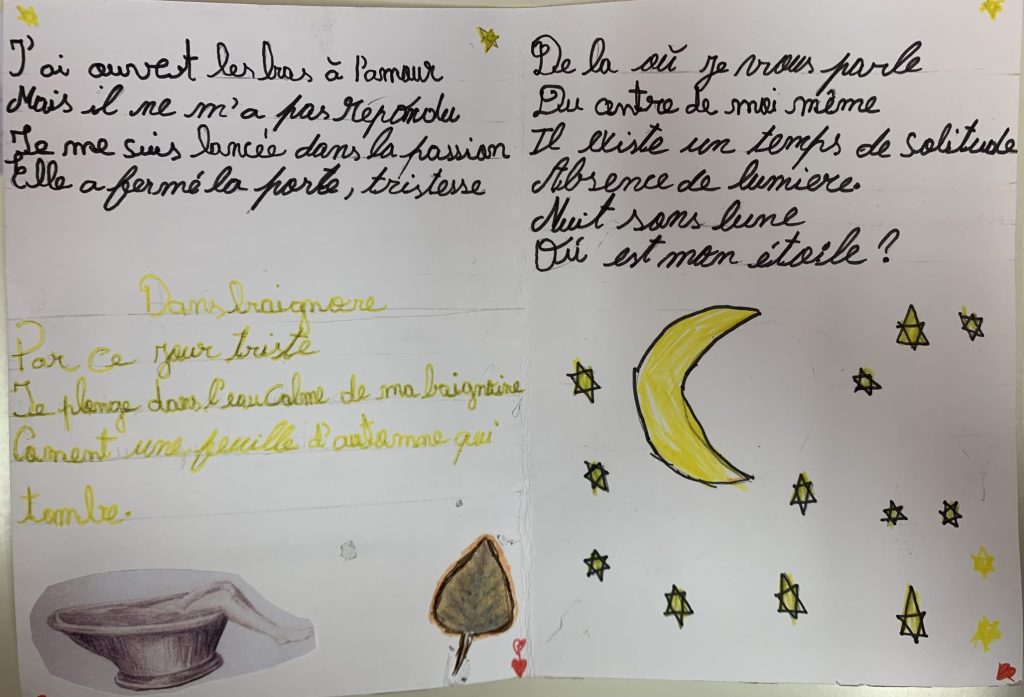 J'ai ouvert les bras à l'amour
Mais il ne m'a pas répondu
Je me suis lancée dans la passion
Elle a fermé la porte, tristesse
Dans baignore
Par ce jour triste
Je plonge dans l'eau calme de ma baignoire
Coment une feuille d'automne qui
tombe.
De la où je vous parle
Du centre de moi même
Il existe un temps de solitude
Absence de lumiere.
Nuit sans lune
Où est mon étoile ?